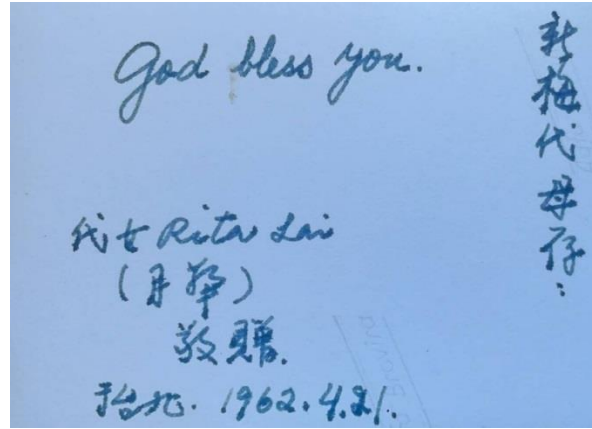 新梅代母存：
God bless you.
代女Rita Lai
(月華)
敬贈.
于台北. 1962.4.21.